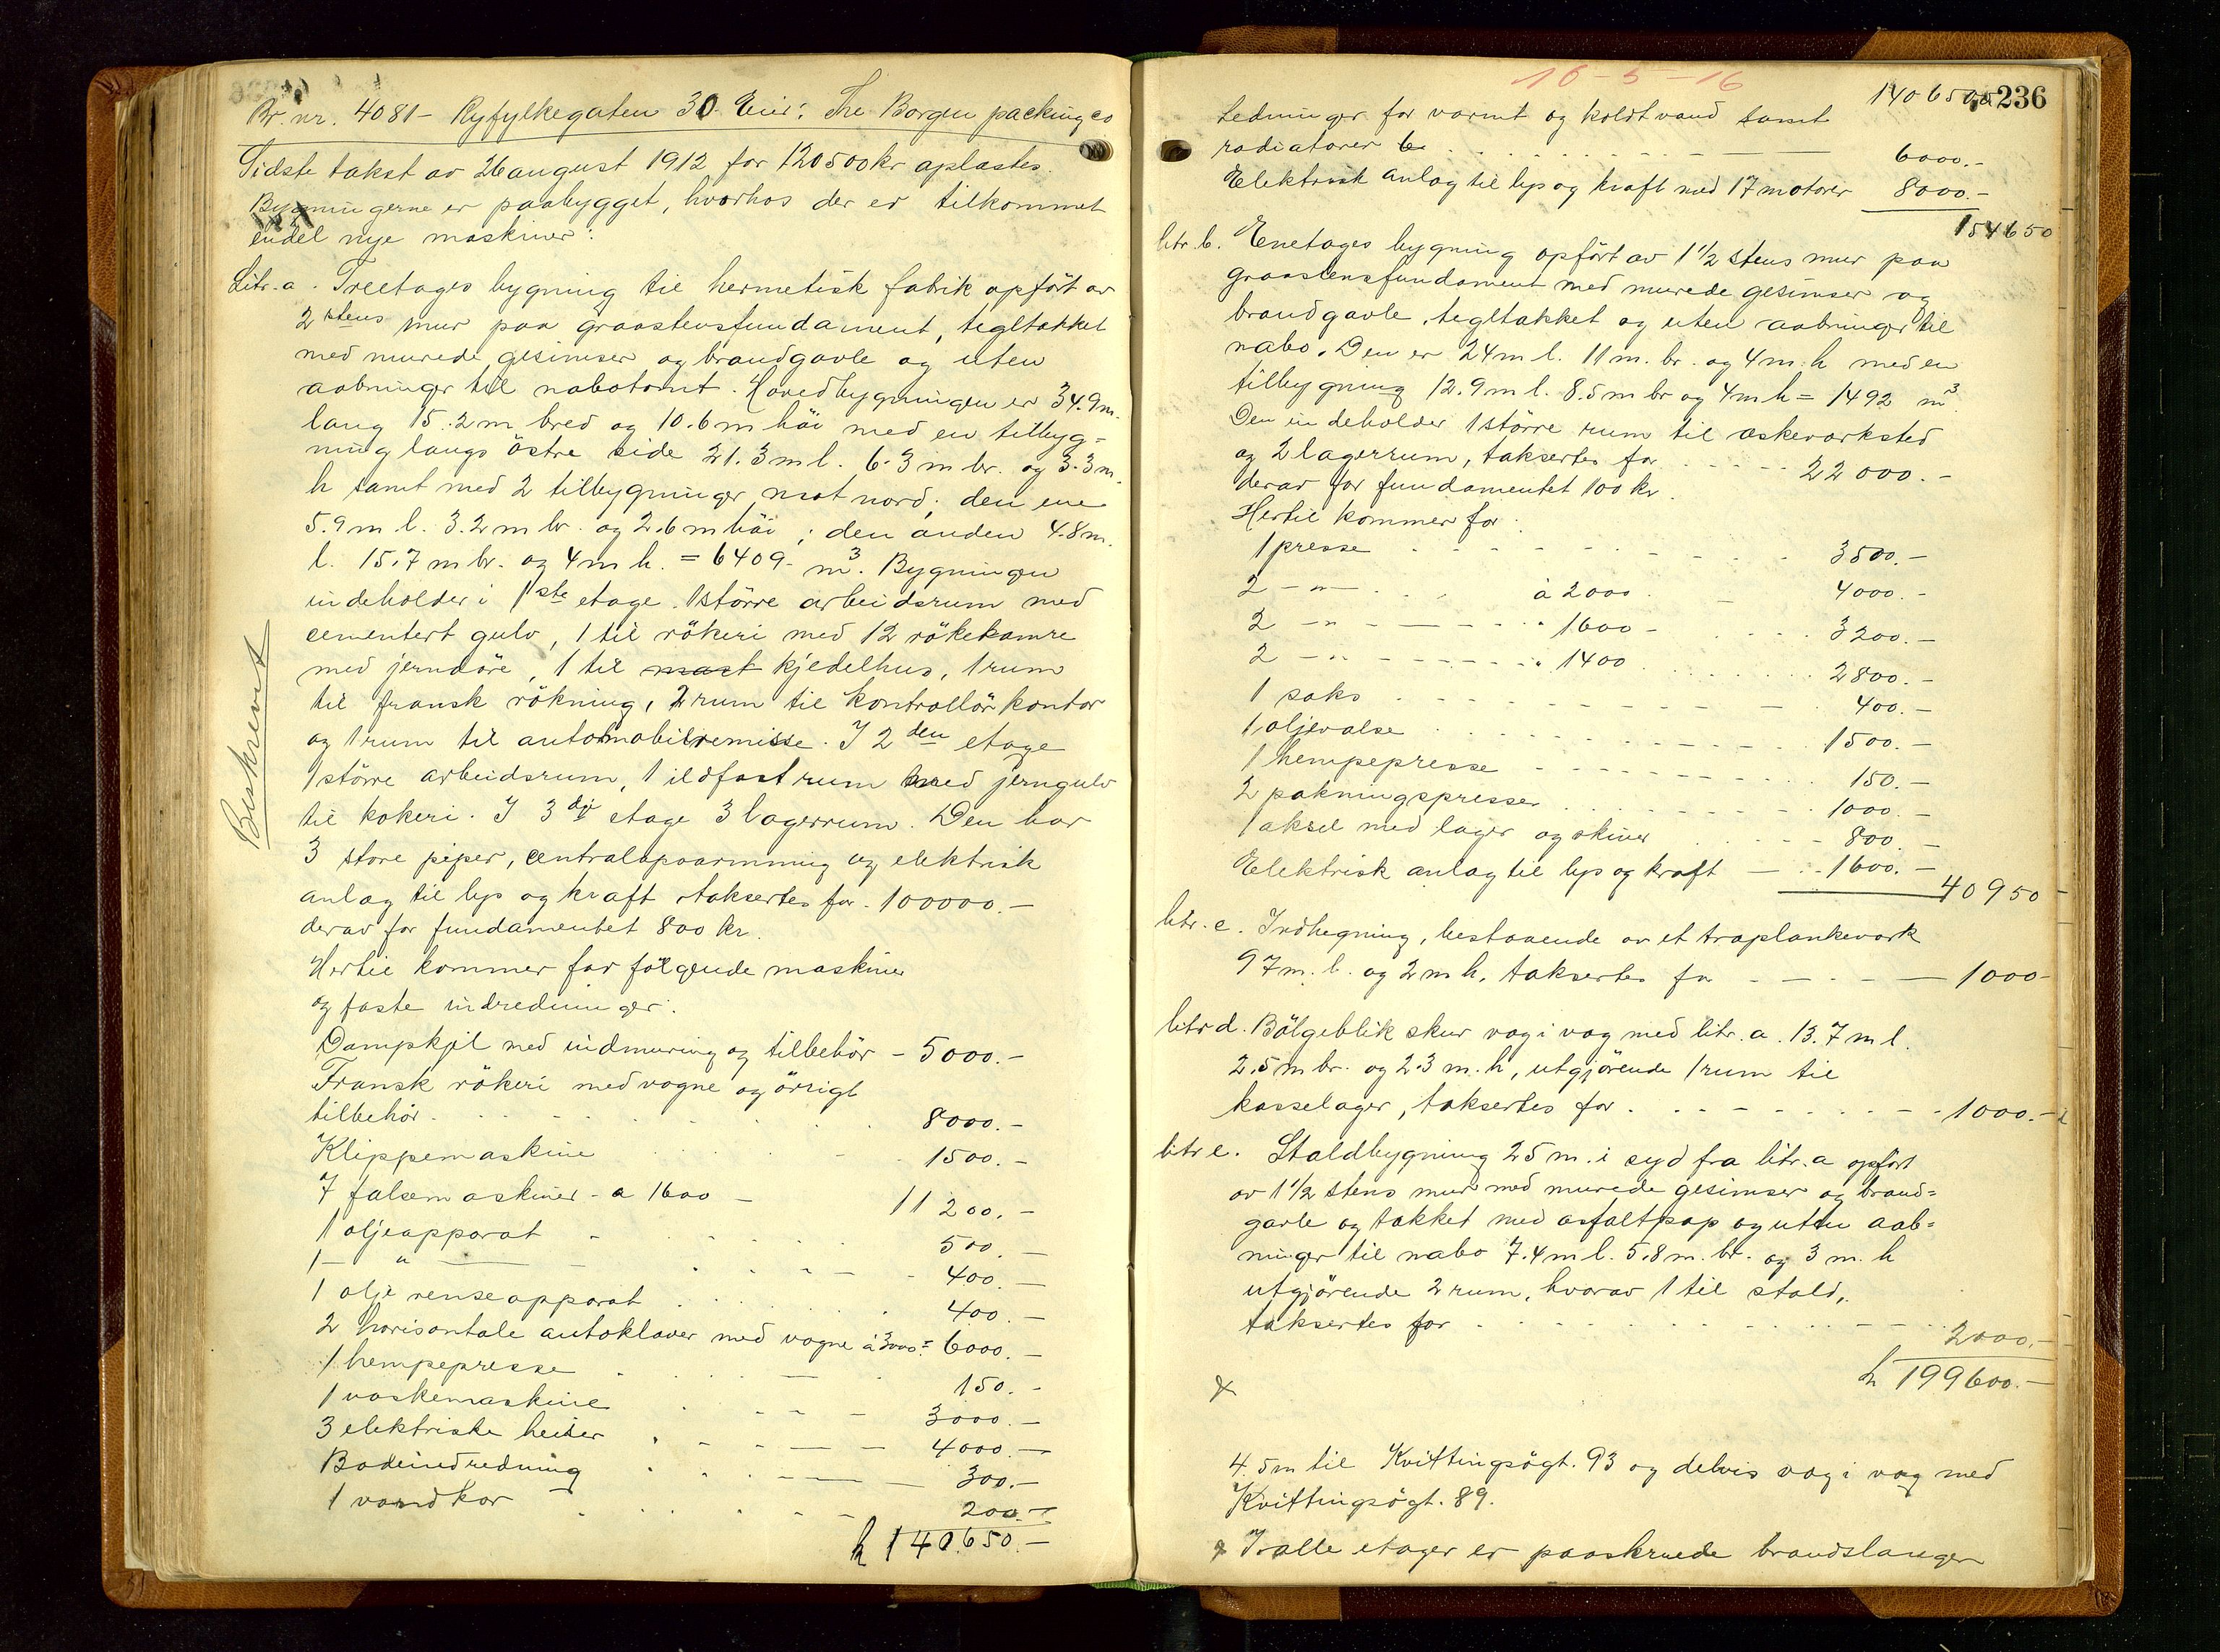 Br. nr. 4081 - Ryfylkegaten 30. Eier: The Borgen packing co
Sidste takst av 26 august 1912 for 120500 kr oplastes.
Bygningerne er paabygget, hvorhos der er tilkommet
endel nye maskiner:
Litr. a. Treetages bygning til hermetisk fabrik opført av
2 stens mur paa graastensfundament, tegltækket
med murede gesimser og brandgavle og uten
aabninger til nabotomt. Hovedbygningen er 34.9 m.
lang 15.2 m bred og 10.6 m höi med en tilbyg=
ning langs östre side 21.3 m l. 6.3 m br. og 3.3 m.
h samt med 2 tilbygninger mot nord; den ene
5.9 m l. 3.2 m br. og 2.6 m höi; den anden 4.8 m.
l. 15.7 m br. og 4 m h. = 6409 - m³. Bygningen
indeholder i 1ste etage 1 större arbeidsrum med
cementert gulv, 1 til rökeri med 12 rökekamre
med jerndöre, 1 til kjedelhus, 1 rum
til fransk rökning, 2 rum til kontrollörkontor
og 1 rum til automobilremisse. I 2den etage
1 större arbeidsrum, 1 ildfast rum med jerngulv
til kokeri. I 3dje etage 3 lagerrum. Den har
3 store piper, centralopvarmning og elektrisk
anlæg til lys og kraft, taksertes for - 100000.-
derav for fundamentet 800 kr.
Hertil kommer for følgende maskiner
og faste indredninger:
Dampkjel med indmuring og tilbehör - 5000.-
Fransk rökeri med vogne og övrigt
tilbehör. 8000.-
Klippemaskine 1500.-
7 falsemaskiner - a 1600 - 11200.-
1 oljeapparat - 500.-
1 - " - 400.-
1 olje renseapparat 400.-
2 horisontale autoklaver med vogne á 3000 = 6000.-
1 hempepresse 150.-
1 vaskemaskine 3000.-
3 elektriske heiser 4000.-
Badeindredning 300.-
1 vandkar 200.-
kr 140.650.-
Beskrevet
16-5-16
236
140650
Ledninger for varmt og koldt vand samt
radiatorer 6000.-
Elektrisk anlæg til lys og kraft med 17 motorer 8000.-
154650
litr. b. Enetages bygning opfört av 1 1/2 stens mur paa
graastensfundament med murede gesimser og
brandgavle, tegltækket og uten aabninger til
nabo. Den er 24 m l. 11 m. br. og 4 m. h med en
tilbygning 12.9 m l. 8.5 m br og 4 m h = 1492 m³
Den indeholder 1 större rum til æskeverksted
og 2 lagerrum, taksertes for 22000.-
derav for fundamentet 100 kr.
Hertil kommer for:
1 presse 3500.-
2 - " - á 2000 4000.-
2 - " - " 1600 - 3200.-
2 - " - " 1400 2800.-
1 saks 400.-
1 oljevalse 1500.-
1 hempepresse 150.-
2 pakningspresser 1000.-
1 aksel med lager og skiver 800.-
Elektrisk anlæg til lys og kraft - 1600.-
40950 -
litr. c. Indhegning, bestaaende av et træplankeverk
97 m. l. og 2 m h, taksertes for 1000-
litr d. Bölgeblik skur væg i væg med litr. a. 13.7 m l.
2.5 m br. og 2.3 m. h, utgjörende 1 rum til
kasselager, taksertes for 1000.-
litr e. Staldbygning 25 m. i syd fra litr. a opfört
av 1 1/2 stens mur med murede gesimser og brand=
gavle og tækket med asfaltpap og uten aab=
ninger til nabo 7.4 m l. 5.8 m. br. og 3 m. h
utgjörende 2 rum, hvorav 1 til stald,
taksertes for 2000.-
kr 199600.-
4.5 m til Kvittingsögt. 93 og delvis væg i væg med
Kvittingsögt. 89.
I alle etager er paaskruede brandslanger